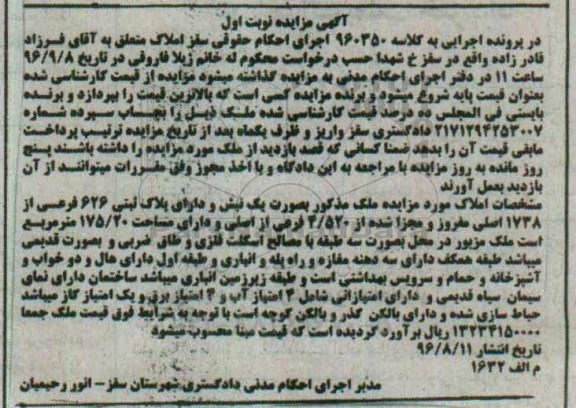 آگهی مزایده نوبت اول
در پرونده اجرایی به کلاسه ۹۶۰۳۵۰ اجرای احکام حقوقی سقز املاک متعلق به آقای فرزاد
قادر زاده واقع در سقز خ شهدا حسب درخواست محکوم له خانم ژیلا فاروقی در تاریخ ۹۶/۹/۸
ساعت ۱۱ در دفتر اجرای احکام مدنی به مزایده گذاشته میشود مزایده از قیمت کارشناسی شده
بعنوان قیمت پایه شروع میشود و برنده مزایده کسی است که بالاترین قیمت را بپردازد و برنده
بایستی فی المجلس ۱۰ درصد قیمت کارشناسی شده ملک ذیل را بحساب سپرده شماره
۲۱۷۱۲۹۴۲۵۳۰۰۷ دادگستری سقز واریز و ظرف یکماه بعد از تاریخ مزایده ترتیب پرداخت
مابقی قیمت آن را بدهد ضمنا کسانی که قصد بازدید از ملک مورد مزایده را داشته باشند پنج
روز مانده به روز مزایده با مراجعه به این دادگاه و با اخذ مجوز وفق مقررات میتوانند از آن
بازدید بعمل آورند
مشخصات املاک مورد مزایده ملک مذکور بصورت یک نبش و دارای پلاک ثبتی ۶۲۶ فرعی از
۱۷۳۸ اصلی مفروز و مجزا شده از ۴/۵۲۰ فرعی از اصلی و دارای مساحت ۱۷۵/۲۰ مترمربع
است ملک مزبور در محل بصورت سه طبقه با مصالح اسکلت فلزی و طاق ضربی و بصورت قدیمی
میباشد طبقه همکف دارای سه دهنه مغازه و راه پله و انباری و طبقه اول دارای هال و دو خواب و
آشپزخانه و حمام و سرویس بهداشتی است و طبقه زیرزمین انباری میباشد ساختمان دارای نمای
سیمان سیاه قدیمی و دارای امتیازاتی شامل ۴ امتیاز آب و ۴ امتیاز برق و یک امتیاز گاز میباشد
حیاط سازی شده و دارای بالکن گذر و بالکن کوچه است با توجه به شرایط فوق قیمت ملک جمعا
۱۳۲۳۴۱۵۰۰۰۰ ریال برآورد گردیده است که قیمت مبنا محسوب میشود
تاریخ انتشار ۹۶/۸/۱۱
م الف ۱۶۳۲
مدیر اجرای احکام مدنی دادگستری شهرستان سقز - انور رحیمیان